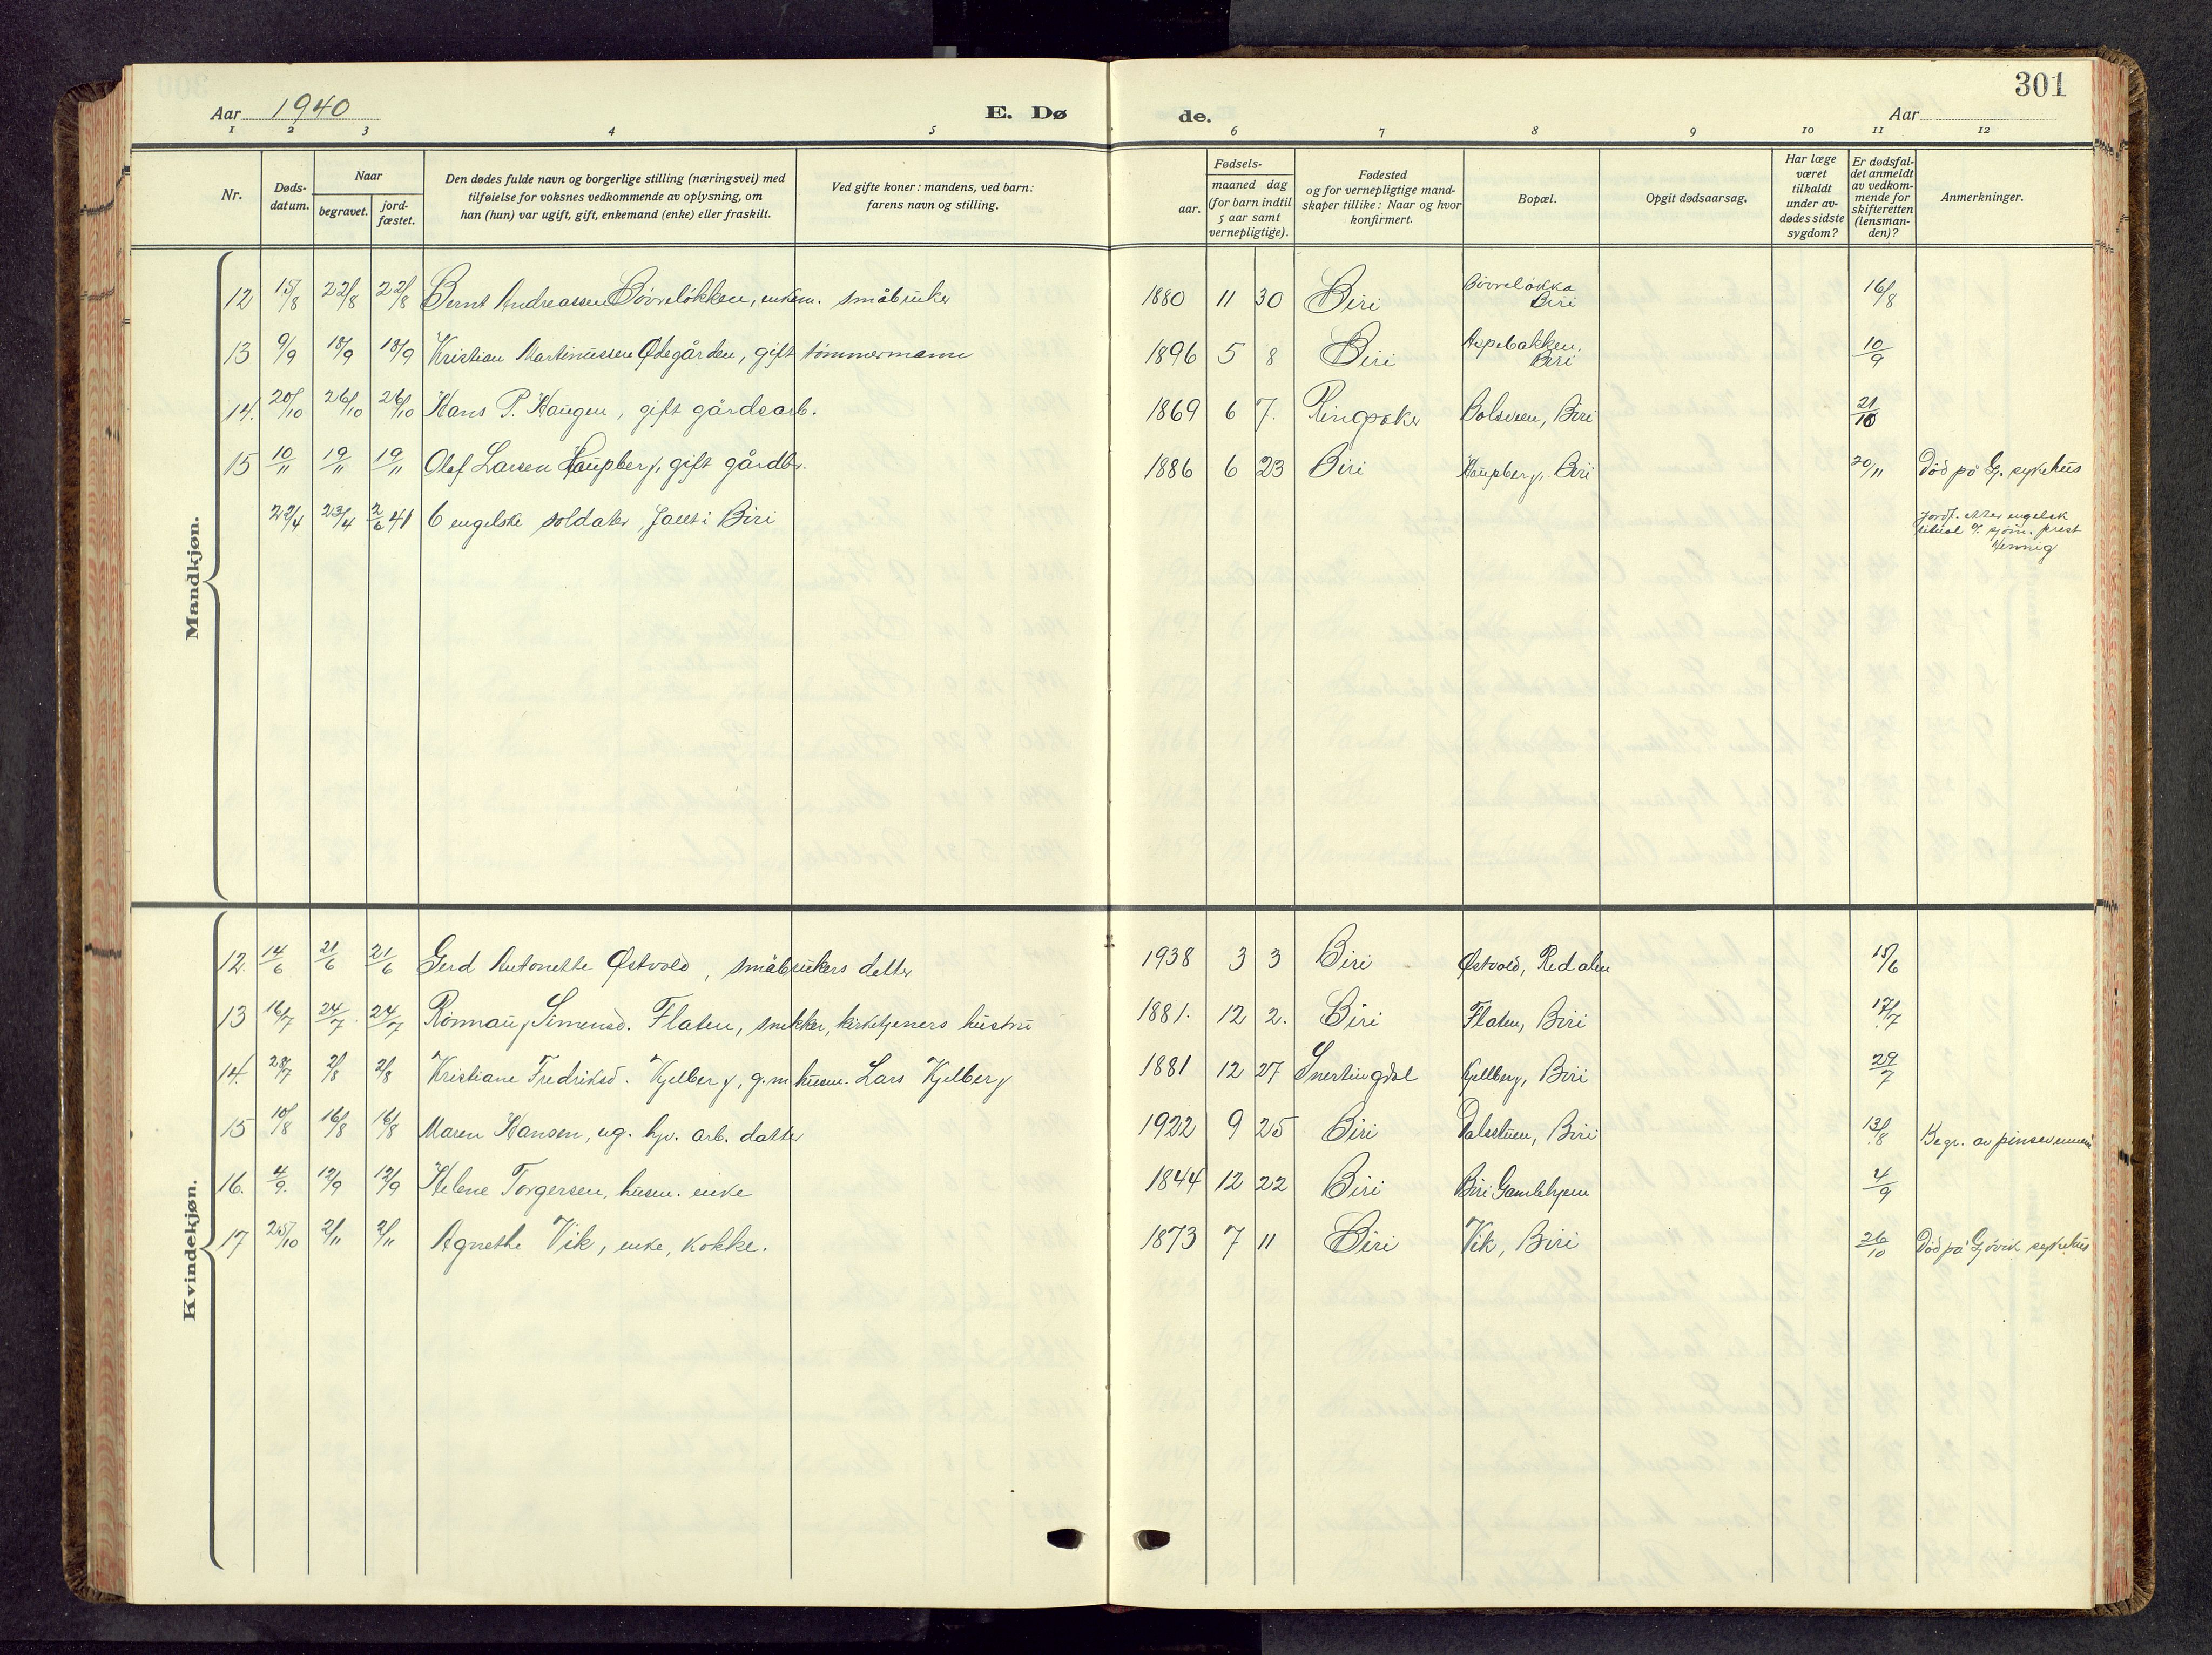 Aar 1940
E. Dø
1 2 3 4 5
Nr.
Døds-
datum.
Naar
begravet.
jord-
fæstet.
Den dødes fulde navn og borgerlige stilling (næringsvei) med
tilføielse for voksnes vedkommende av oplysning, om
han (hun) var ugift, gift, enkemand (enke) eller fraskilt.
Ved gifte koner: mandens, ved barn:
farens navn og stilling.
Mandkjøn.
12 15/8 22/8 22/8 Bernt Andreassen Bövrelökken, enkem. småbruker
13 9/9 18/9 18/9 Kristian Martinussen Ødegården, gift tömmermann
14. 20/10 26/10 26/10 Hans P. Haugen, gift gårdsarb.
15 10/11 19/11 19/11 Olaf Larsen Haupberg, gift gårdbr.
22/4 23/4 2/6 41 6 engelske soldater, falt i Biri
Kvindekjøn.
12. 14/6 21/6 21/6 Gerd Antonette Østvold, småbrukers datter
13 16/7 24/7 24/7 Rönnaug Simensd. Flaten, snekker, kirketjeners hustru
14. 28/7 2/8 2/8 Kristiane Fredriksd. Kjelberg, g.m. husm. Lars Kjelberg
15 10/8 16/8 16/8 Maren Hansen, ug. hjv. arb. datter
16. 4/9. 12/9 12/9 Helene Torgersen, husm. enke
17 25/10 2/11 2/11 Agnethe Vik, enke, kokke.
301
de.
Aar
6 7 8 9 10 11 12
Fødsels-
aar.
maaned dag
(for barn indtil
5 aar samt
vernepligtige).
Fødested
og for vernepligtige mand-
skaper tillike: Naar og hvor
konfirmert.
Bopæl.
Opgit dødsaarsag.
Har læge
været
tilkaldt
under av-
dødes sidste
sygdom?
Er dødsfal-
det anmeldt
av vedkom-
mende for
skifteretten
(lensman-
den)?
Anmerkninger.
1880 11 30 Biri Bövrelökka
Biri 16/8
1896 5 8 Biri Aspebakken,
Biri 10/9
1869 6 7. Ringsaker Bolsveen, Biri 21/10
1886 6 23 Biri Haupberg, Biri 20/11 Död på G. sykehus
Jordf. etter engelsk
ritual v. sjöm. prest
Hennig
1938 3 3 Biri Østvold, Redalen 15/6
1881. 12 2. Biri Flaten, Biri 17/7
1881 12 27 Snertingdal Kjellberg, Biri 29/7
1922 9 25 Biri Dalstuen, Biri 13/8 Begr. av pinsevennene
1844 12 22 Biri Biri Gamlehjem 4/9
1873 7 11 Biri Vik, Biri 26/10 Död på Gjövik sykehus